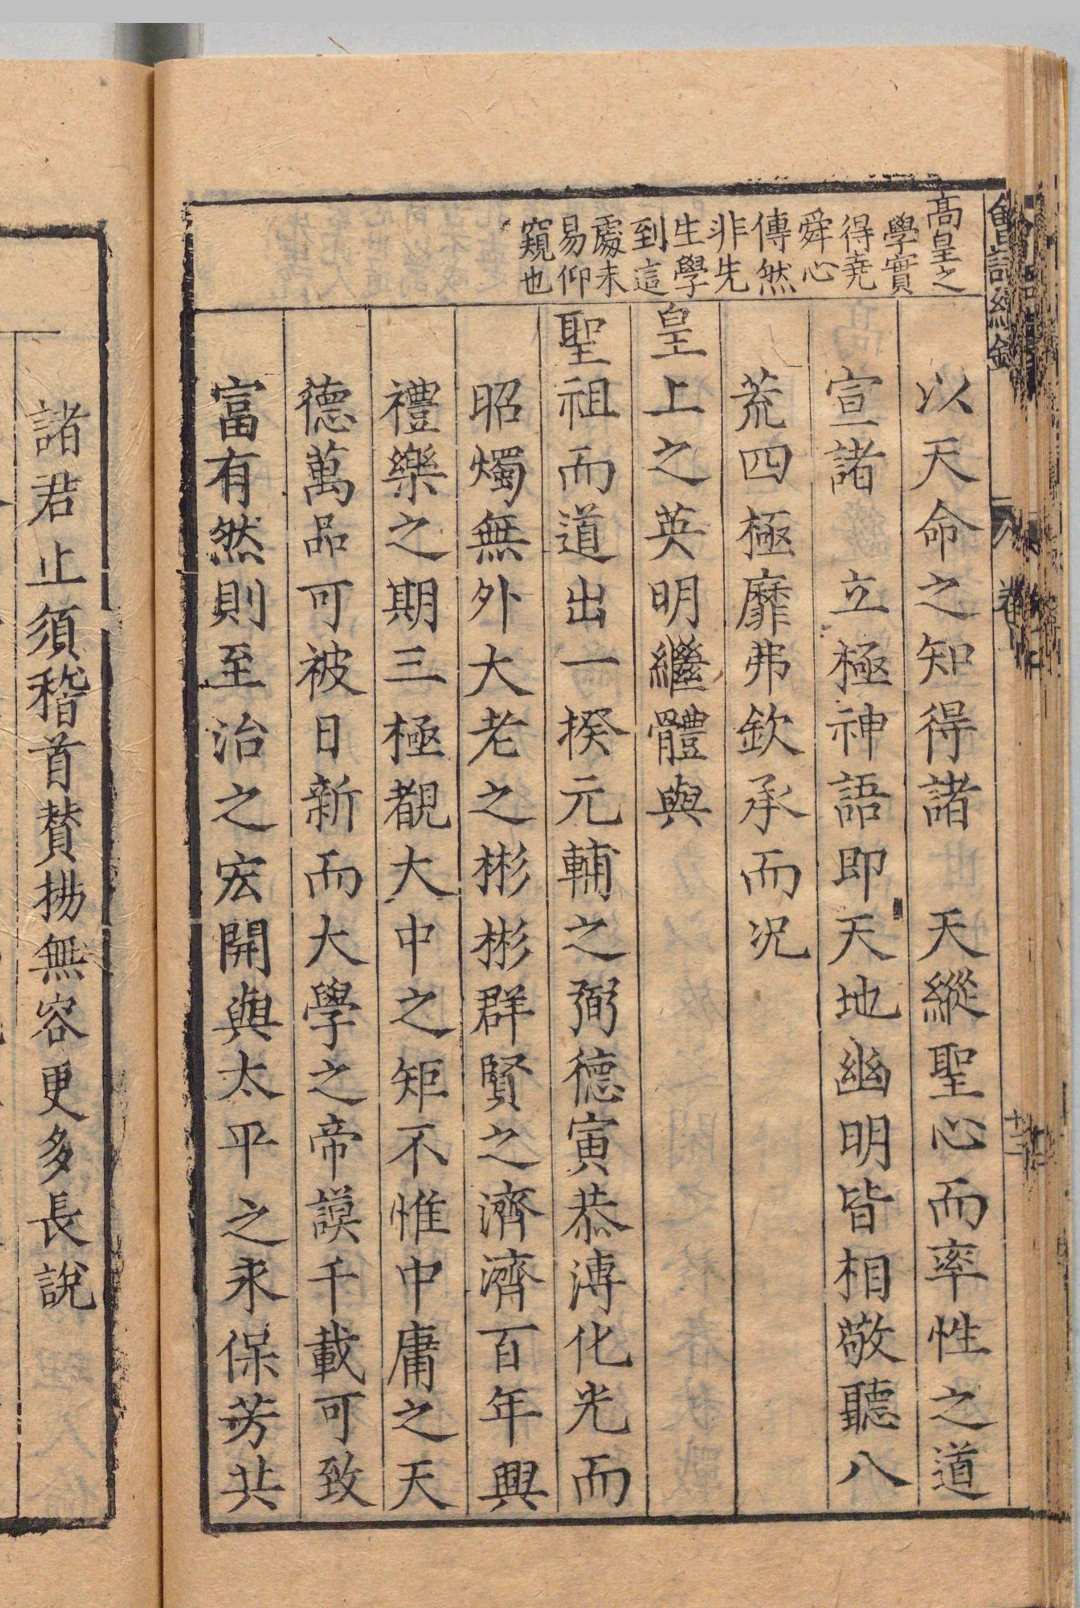 高皇之
學實
得堯
舜心
傳然
非先
生學
到這
處未
易仰
窺也
以天命之知得諸 天縱聖心而率性之道
宣諸 立極神語即天地幽明皆相敬聽八
荒四極靡弗欽承而况
皇上之英明繼體與
聖祖而道出一揆元輔之弼德寅恭溥化光而
昭燭無外大老之彬彬群賢之濟濟百年興
禮樂之期三極覩大中之矩不惟中庸之天
德萬品可被日新而大學之帝謨千載可致
富有然則至治之宏開與太平之永保芳共
諸君止須稽首賛揚無容更多長說